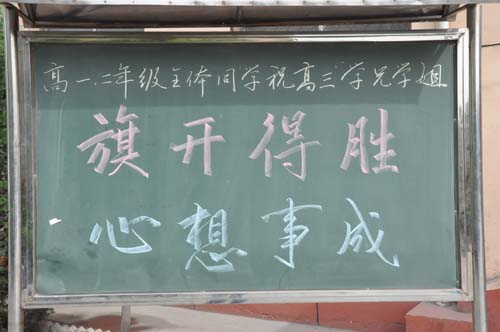 高一.二年级全体同学祝高三学兄学姐
旗开得胜
心想事成